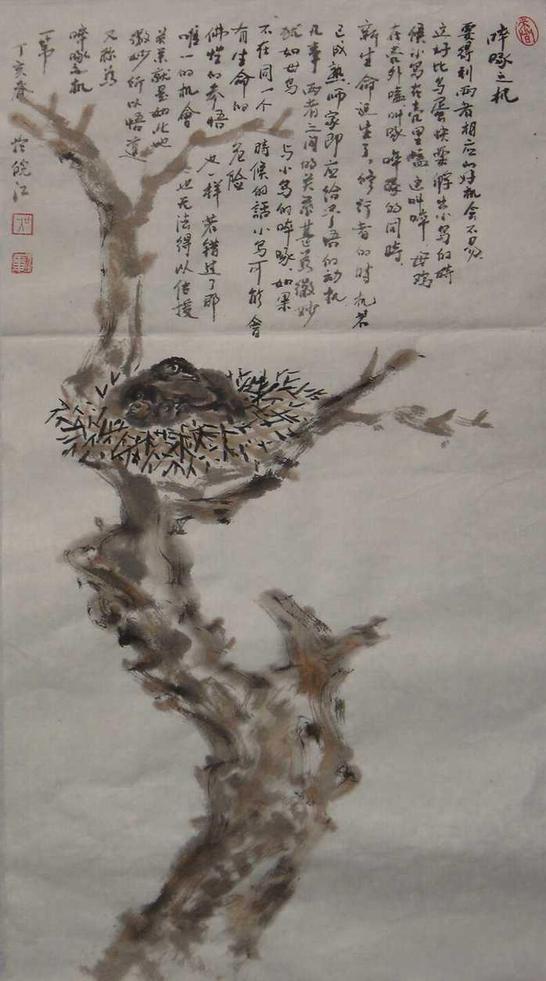 啐啄之机
要得到两者相应的好机会不易
这好比鸟蛋快要孵生小鸟的时
候小鸟在壳里嗑这叫啐母鸡
在壳外嗑叫啄啐啄的同时
新生命诞生了修行者的时机若
已成熟师家即应给决了悟的动机
凡事两者之间的关系甚为微妙
犹如母鸟与小鸟的啐啄如果
不在同一个时候的话小鸟可能会
有生命的危险
佛性的参悟也一样若错过了那
唯一的机会也无法得以传授
关系就是如此地
微妙所以悟道
又称为
啐啄之机
一苇
丁亥春於皖江